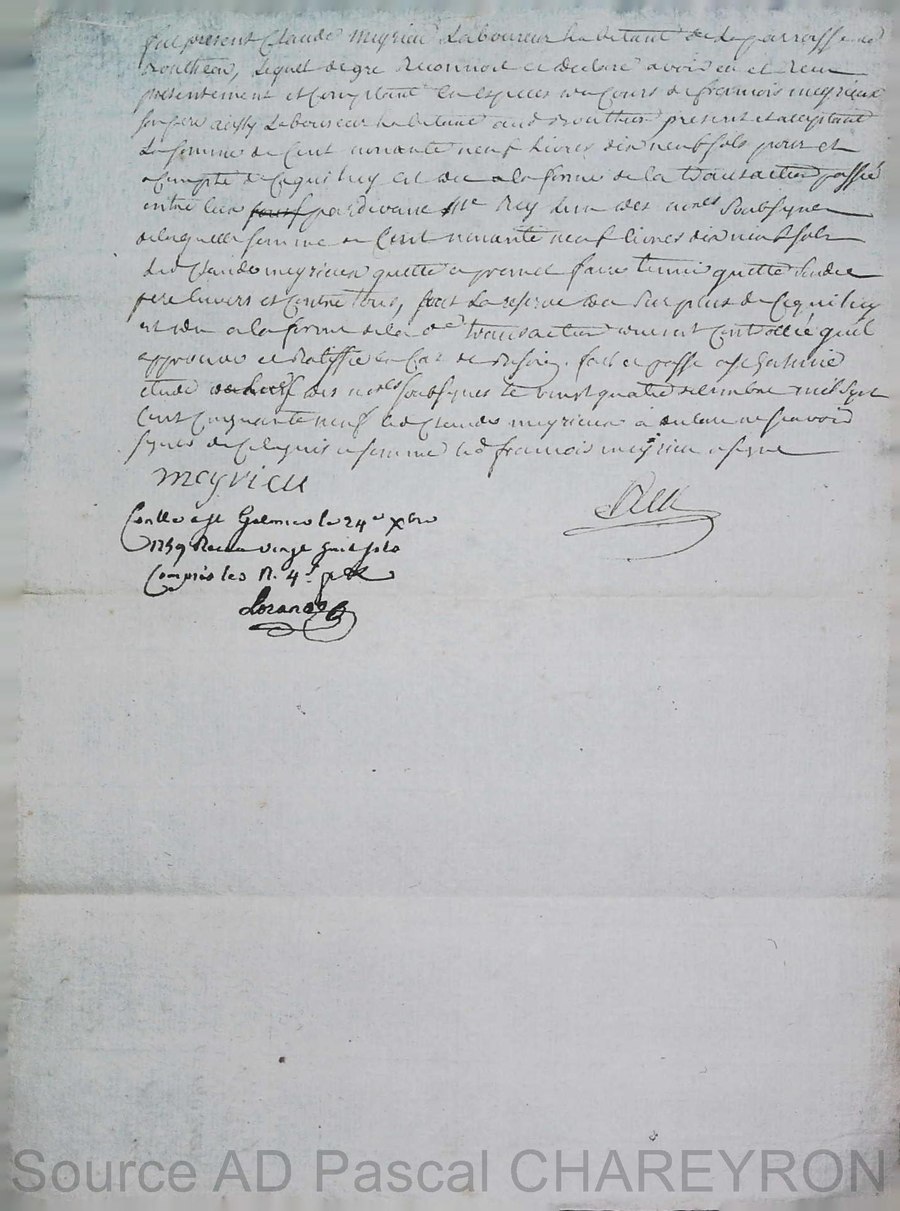 fut présent Claude meyrieu Laboureur habitant de La parroisse de
lequel de gré Reconnoit et déclare avoir eu et Receu
presentement et Comptant En especes du Cours de francois meyrieu
son pere aussy Laboureur habitant present et acceptant
La somme de Cent nonante neuf Livres dix neuf sols pour et
a Compte de Ce qui luy est du a la forme de la transaction passée
entre eux pardevant Me Rey L'un des nores Soubsignes
de laquelle somme de Cent nonante neuf livres dix neuf sols
led Claude meyrieu quitte et promet faire tenir quitte sond
pere Envers et Contre tous, sous La reserve du Sur plus de Ce qui luy
est du a la forme de la de transaction duement Controllée qu'il
approuve et Ratiffie en Cas de Besoin. fait et passé a St Galmier
etude des nores soubsignes le vingt quatre decembre mil sept
Cent Cinquante neuf led Claude meyrieu a declaré ne scavoir
signer de Ce Requis et sommé led francois meyrieu a signé
meyrieu
Rey
Conllé a St Galmier le 24e Xbre
1759 Receu vingt huit sols
Compris les n. 4s. p